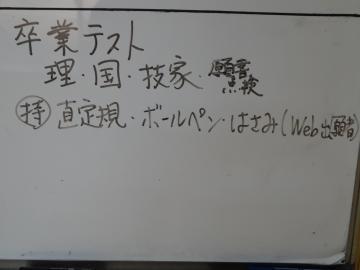 卒業テスト
理・国・技家・願書
点検
㊕直定規・ボールペン・はさみ(Web出願者)